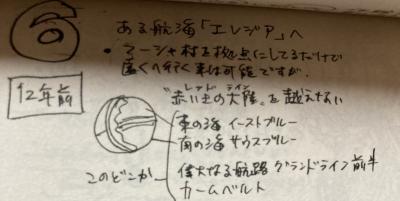 ⑥
ある航海「エレジア」へ
• フーシャ村を拠点にしてるだけで
遠くへ行く事は可能ですが.
12年前
レッド ライン
"赤い土の大陸"を越えない
東の海 イーストブルー
南の海 サウスブルー
このどこか
偉大なる航路 グランドライン前半
カームベルト